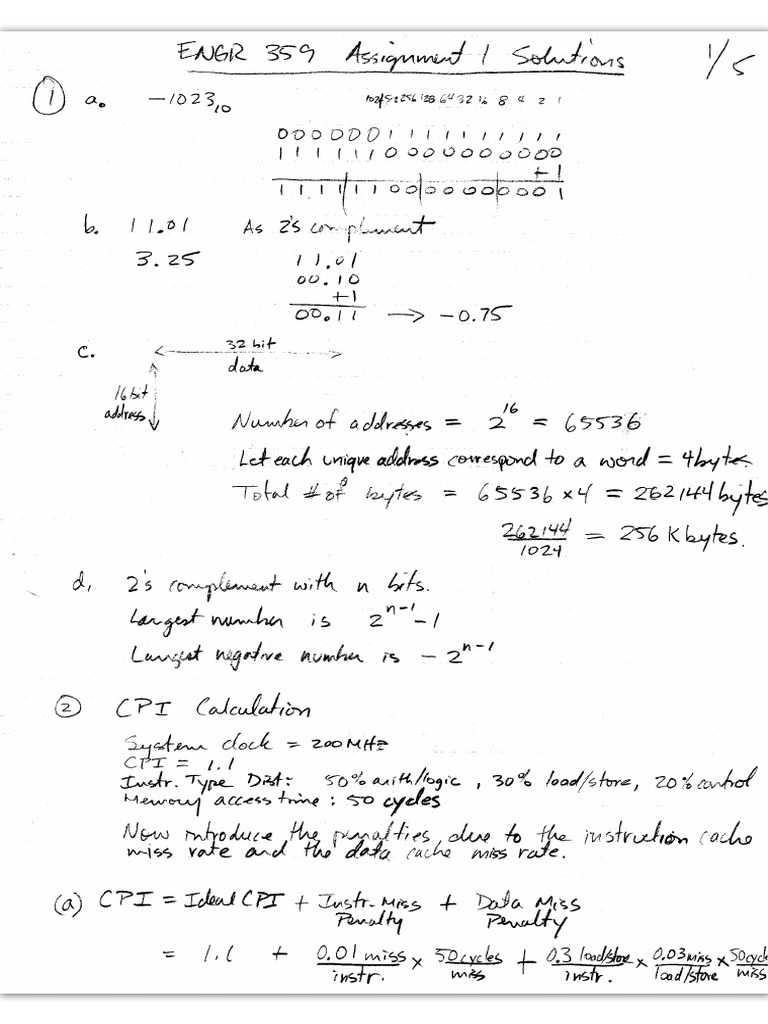 ENGR 359 Assignment 1 Solutions 1/5
① a. -1023₁₀ 1024 512 256 128 64 32 16 8 4 2 1
0000001111111111
1111110000000000
+1
1111110000000001
b. 11.01 As 2's compliment
3.25 11.01
00.10
+1
00.11 → -0.75
c. 32 bit
data
16 bit
address
Number of addresses = 2^16 = 65536
Let each unique address correspond to a word = 4 bytes
Total # of bytes = 65536 × 4 = 262144 bytes
262144/1024 = 256 K bytes.
d. 2's complement with n bits.
Largest number is 2^(n-1) - 1
Largest negative number is - 2^(n-1)
② CPI Calculation
System clock = 200 MHz
CPI = 1.1
Instr. Type Dist: 50% arith/logic, 30% load/store, 20% control
Memory access time: 50 cycles
Now introduce the penalties due to the instruction cache
miss rate and the data cache miss rate.
(a) CPI = Ideal CPI + Instr. Miss Penalty + Data Miss Penalty
= 1.1 + 0.01 miss/instr. × 50 cycles/miss + 0.3 load/store/instr. × 0.03 miss/load/store × 50 cycl/miss